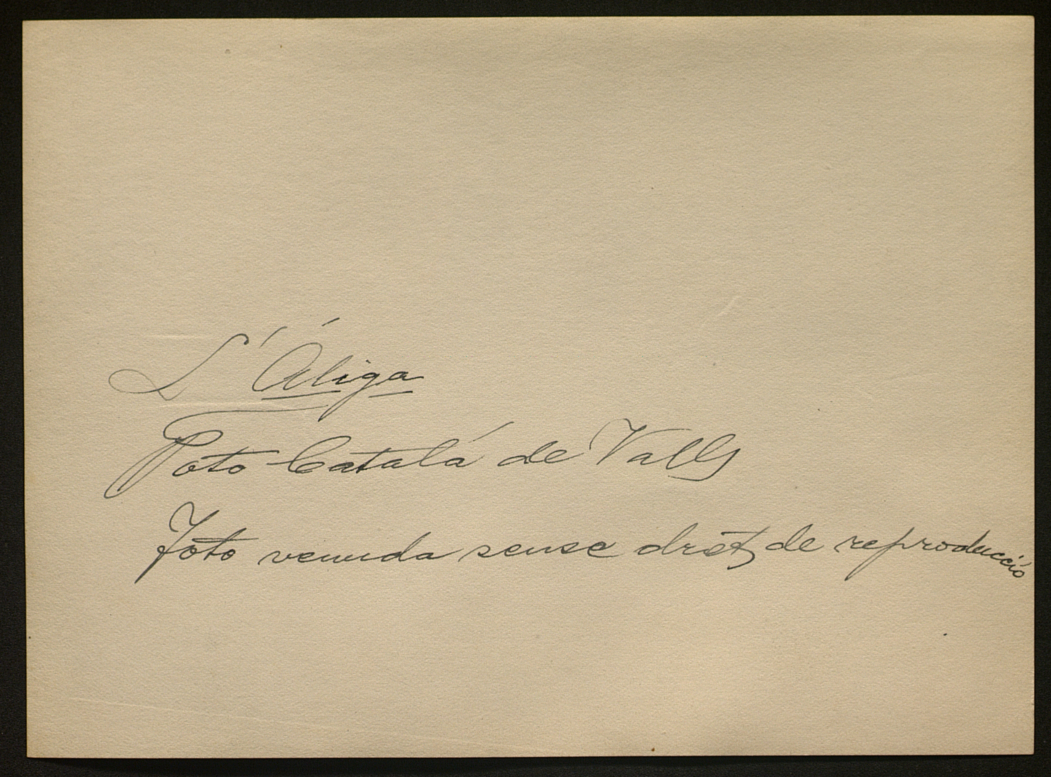 L'Áliga
Foto Catalá de Valls
Foto venuda sense dret de reproducció